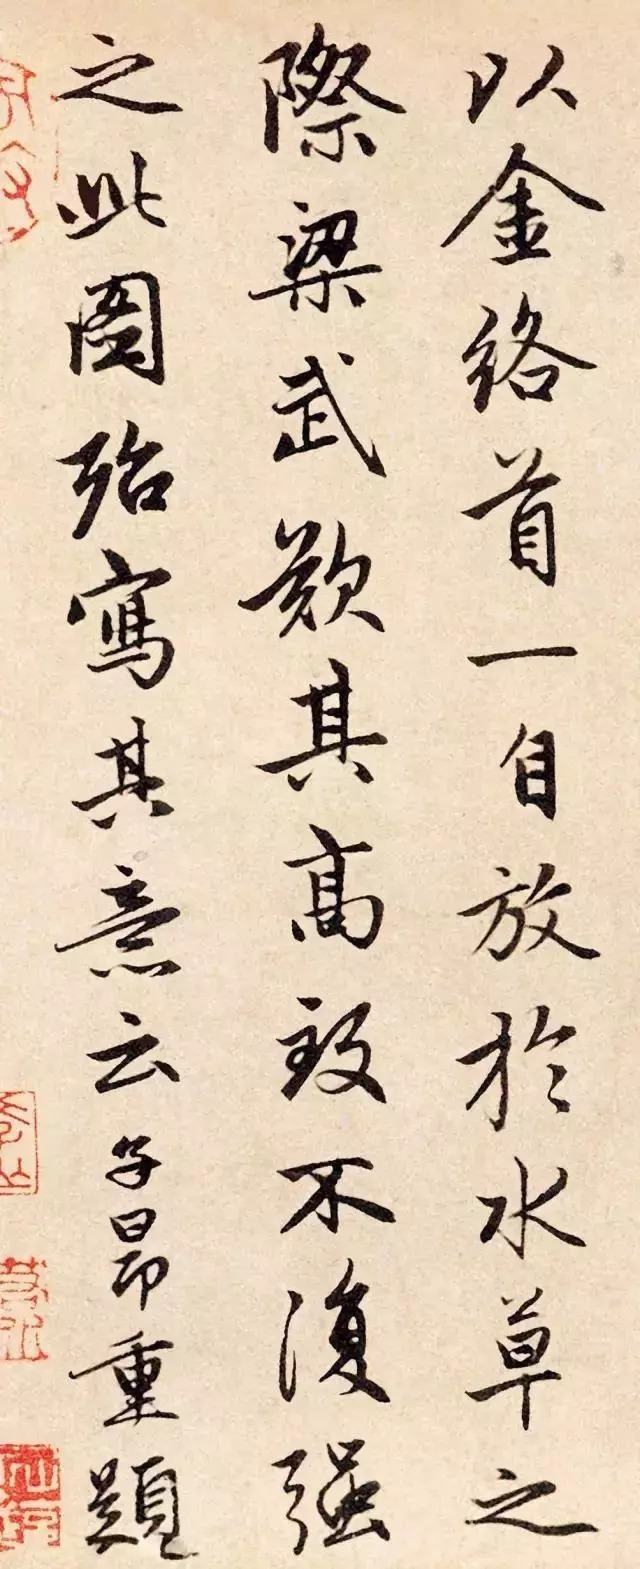 以金络首一自放於水草之
際梁武欽其高致不復強
之此圖殆寫其意云子昂重題